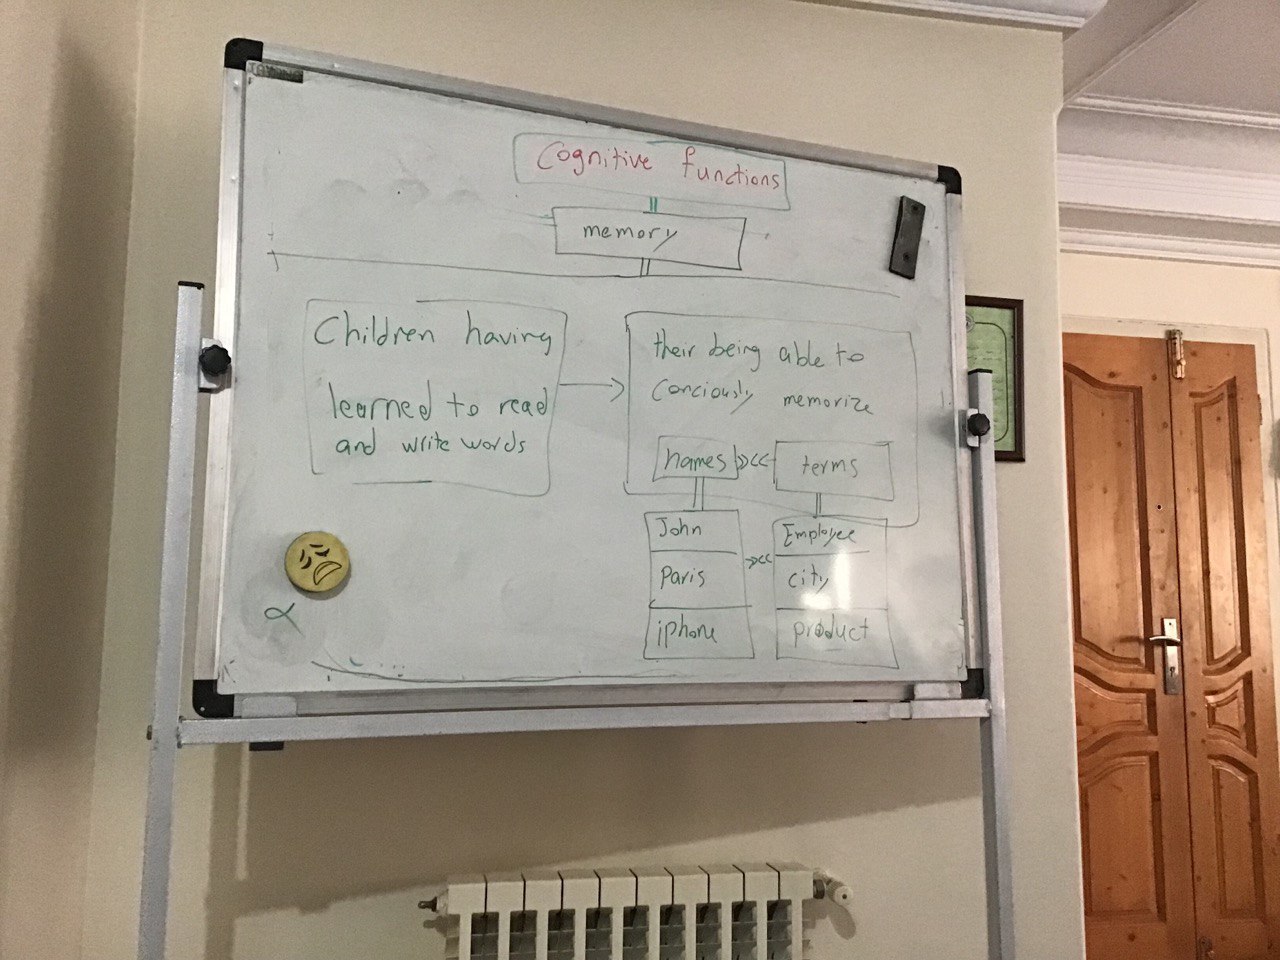 Cognitive functions
memory
Children having
learned to read
and write words
their being able to
Conciously memorize
names
terms
John
Employee
Paris
city
iphone
product
α